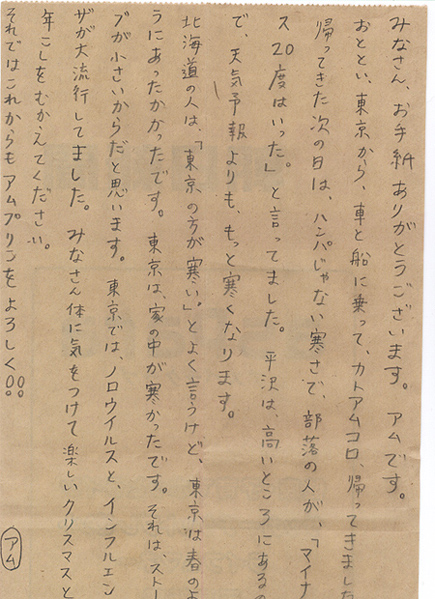 みなさん、お手紙ありがとうございます。アムです。
おととい、東京から、車と船に乗って、カトアムコロ、帰ってきました
帰ってきた次の日は、ハンパじゃない寒さで、部落の人が、「マイナ
ス20度はいった。」と言ってました。平沢は、高いところにあるの
で、天気予報よりも、もっと寒くなります。
北海道の人は、「東京の方が寒い。」とよく言うけど、東京は春のよ
うにあったかかったです。東京は、家の中が寒かったです。それは、ストー
ブが小さいからだと思います。東京では、ノロウイルスと、インフルエン
ザが大流行してました。みなさん体に気をつけて楽しいクリスマスと
年こしをむかえてください。
それではこれからもアムプリンをよろしく!!
アム